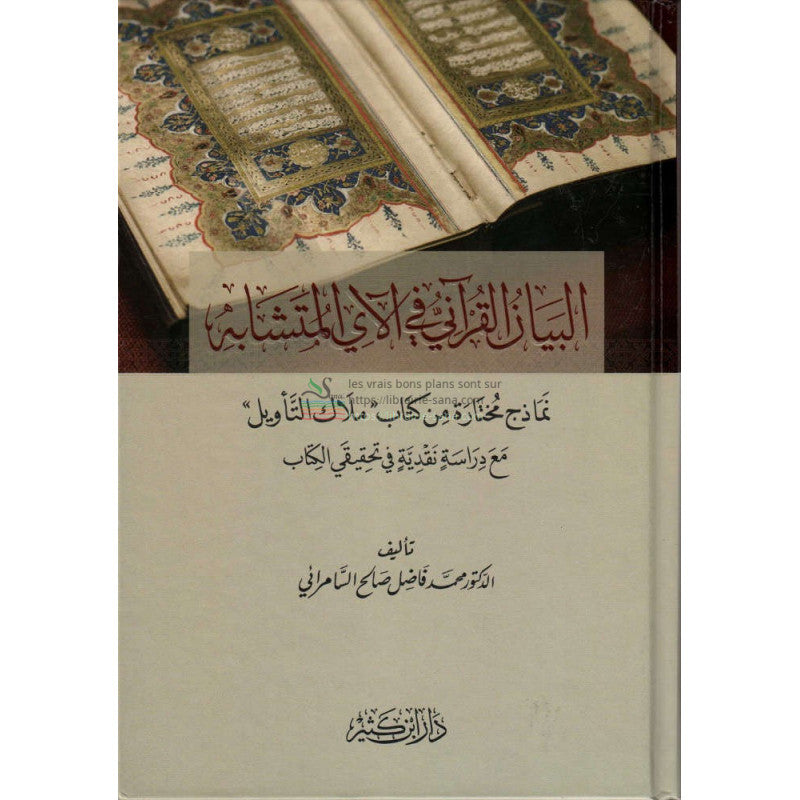 البيان القرآني في الآي المتشابه
les vrais bons plans sont sur
https://librairie-sana.com
نماذج مختارة من كتاب "ملاك التأويل"
مع دراسة نقدية في تحقيقي الكتاب
تأليف
الدكتور محمد فاضل صالح السامرائي
دار ابن كثير